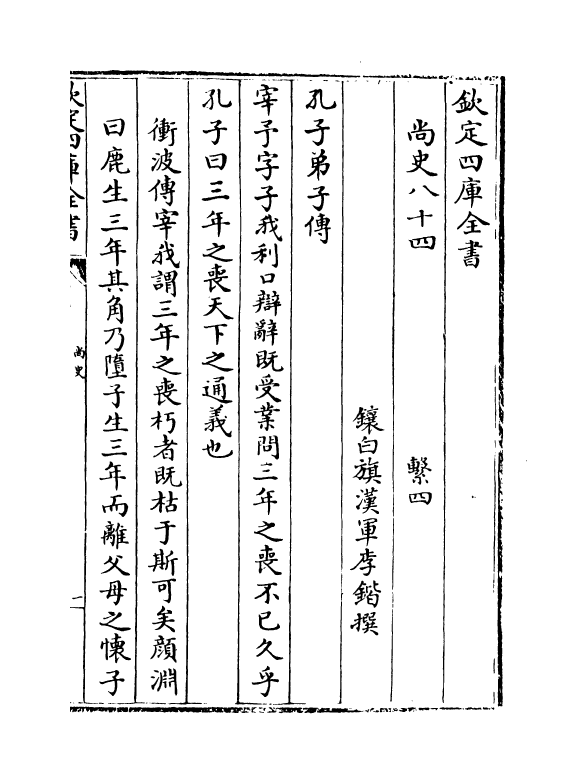 欽定四庫全書
尚史八十四 繫四
鑲白旗漢軍李鍇撰
孔子弟子傳
宰予字子我利口辯辭既受業問三年之喪不已久乎
孔子曰三年之喪天下之通義也
衝波傳宰我謂三年之喪朽者既枯于斯可矣顔淵
曰鹿生三年其角乃墮子生三年而離父母之懷子
欽定四庫全書
尚史